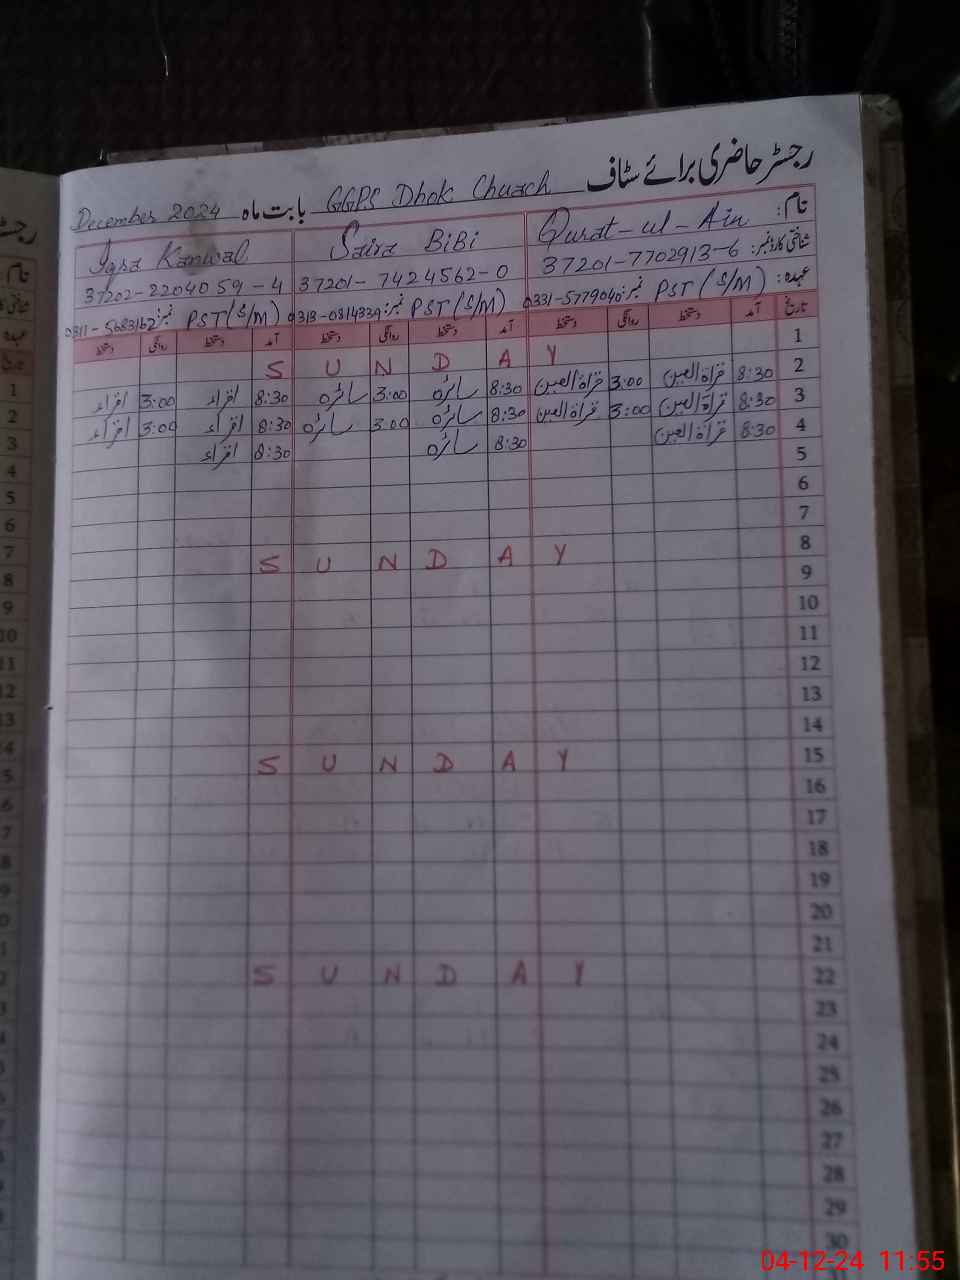 رجسٹر حاضری برائے سٹاف
GGPS Dhok Chuach بابت ماہ December 2024
نام: Qurat-ul-Ain Saira BiBi Iqra Kanwal
شناختی کارڈ نمبر: 37201-7702913-6 37201-7424562-0 37202-2204059-4
عہدہ: PST (S/M) نمبر: 0331-5779040 PST (S/M) نمبر: 0313-0314339 PST (S/M) نمبر: 0311-5683162
تاریخ آمد دستخط روانگی دستخط آمد دستخط روانگی دستخط آمد دستخط روانگی دستخط
1 S U N D A Y
2 8:30 قراۃ العین 3:00 قراۃ العین 8:30 سائرہ 3:00 سائرہ 8:30 اقراء 3:00 اقراء
3 8:30 قراۃ العین 3:00 قراۃ العین 8:30 سائرہ 3:00 سائرہ 8:30 اقراء 3:00 اقراء
4 8:30 قراۃ العین 8:30 سائرہ 8:30 اقراء
5
6
7
8 S U N D A Y
9
10
11
12
13
14
15 S U N D A Y
16
17
18
19
20
21
22 S U N D A Y
23
24
25
26
27
28
29
30
04-12-24 11:55